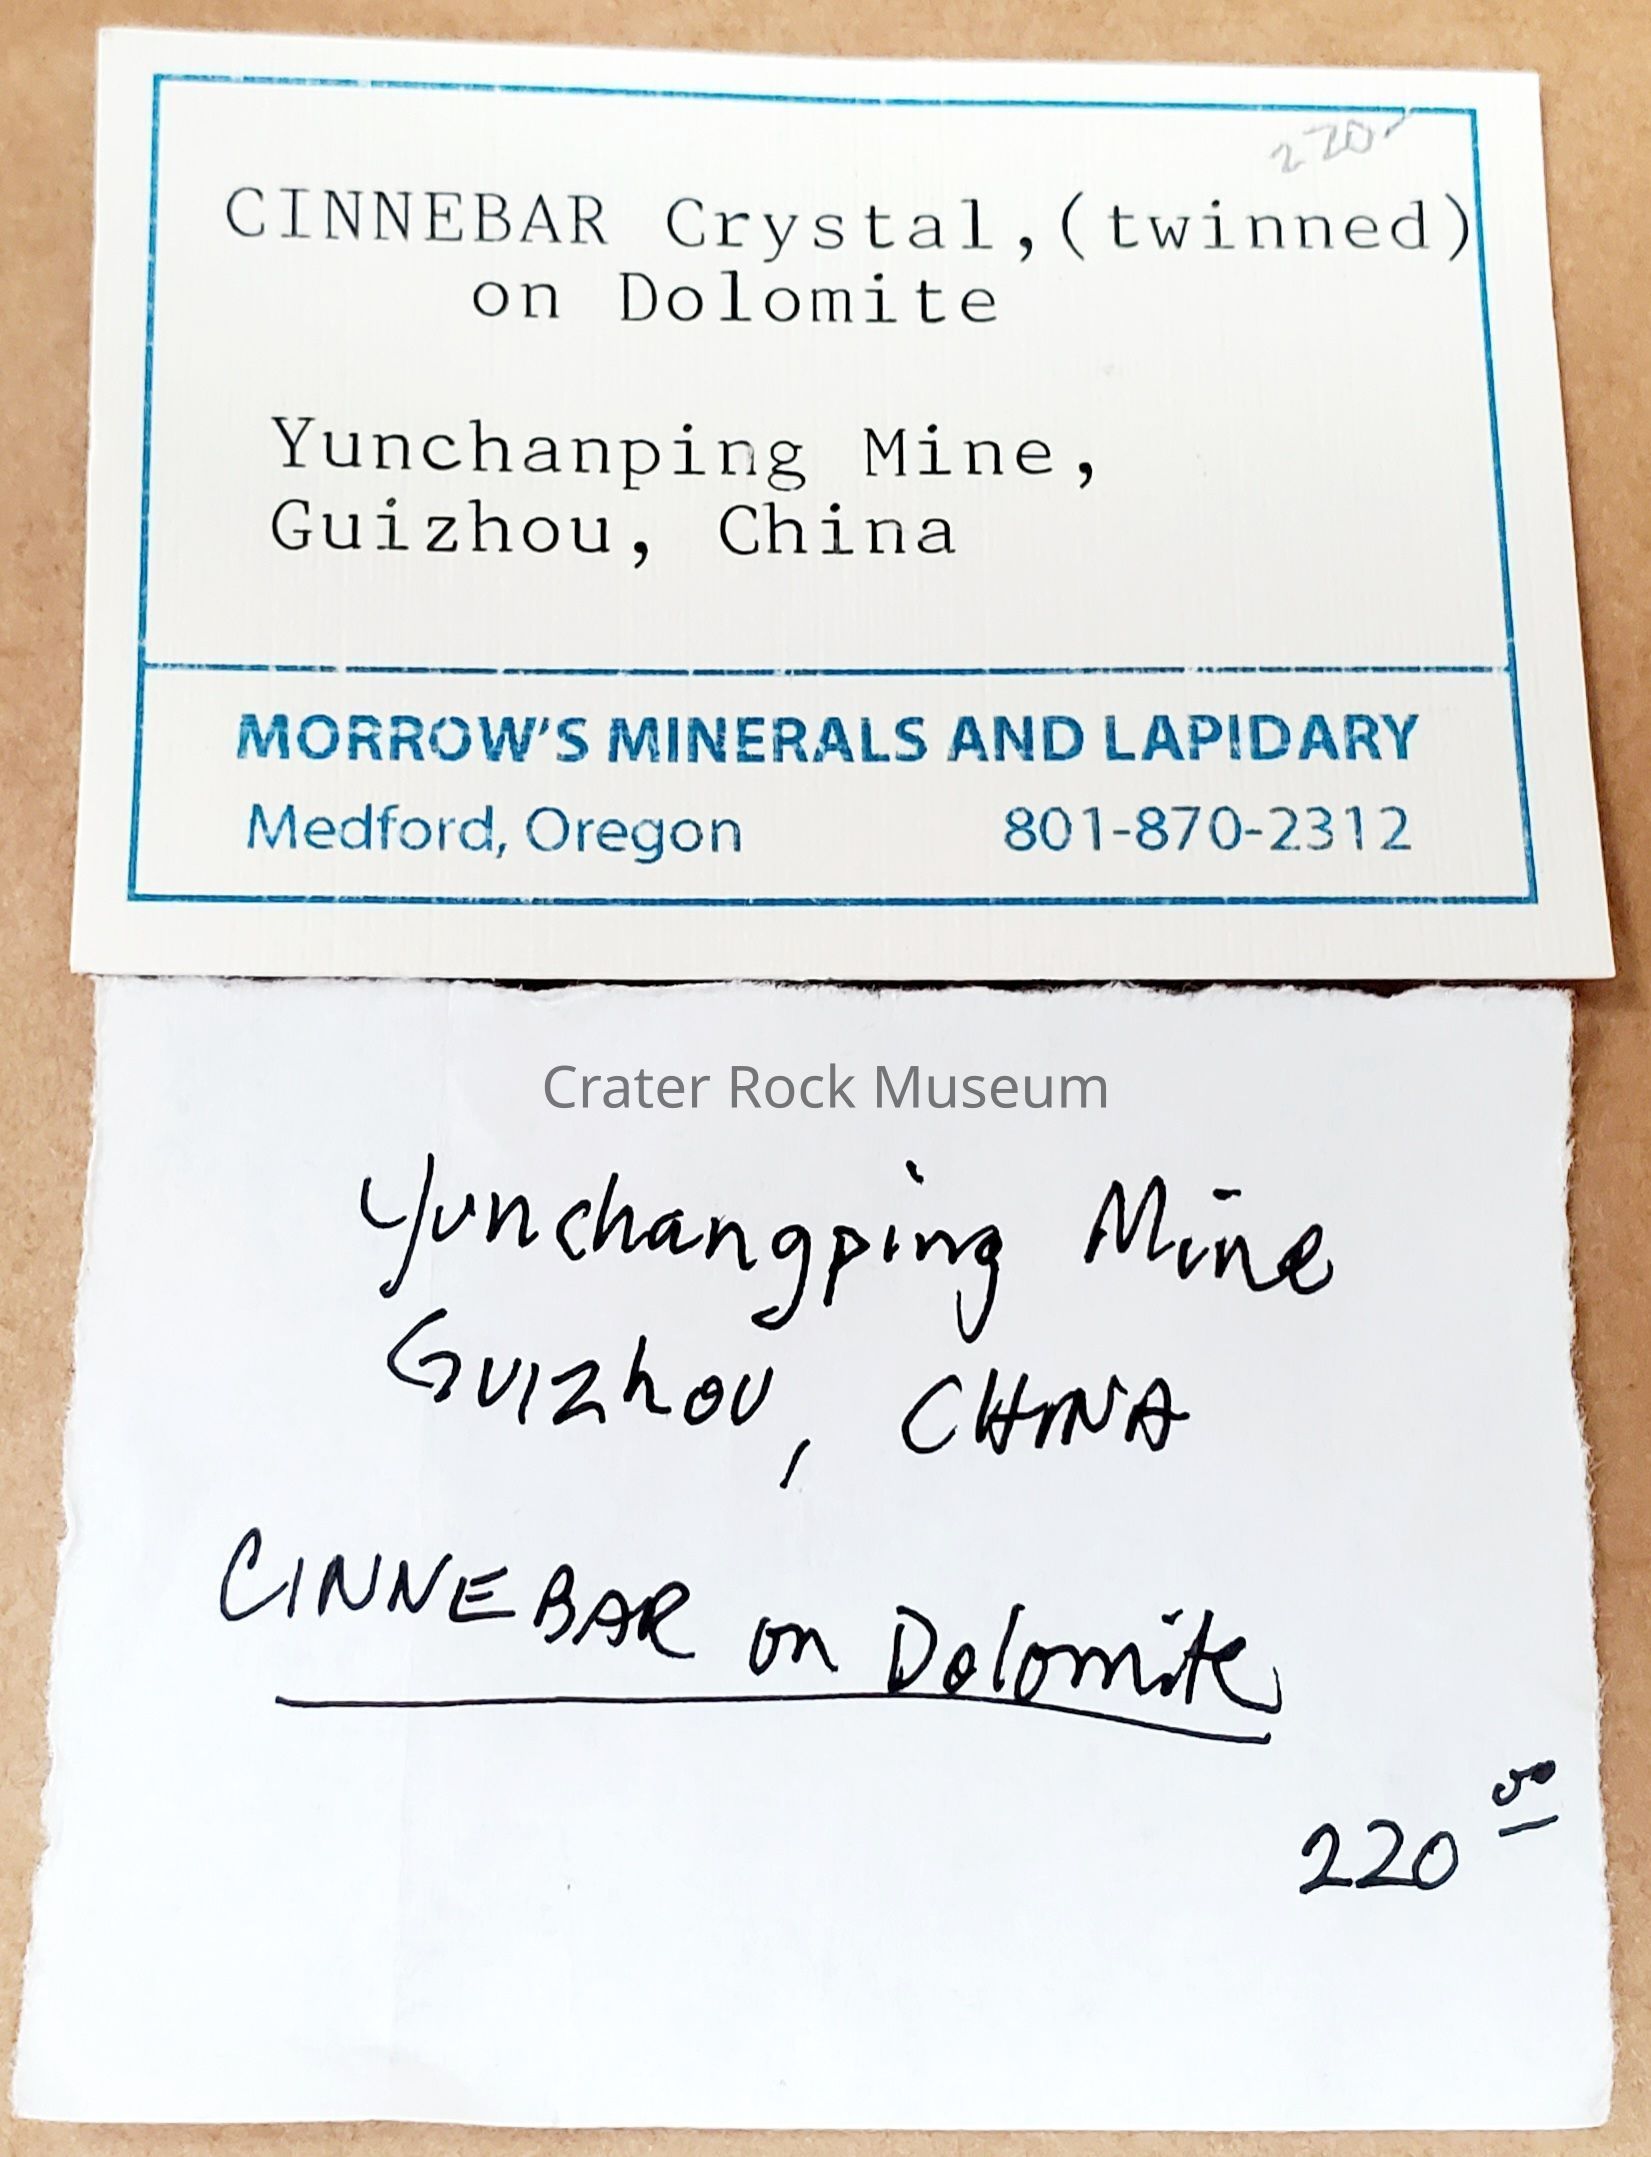 220-
CINNEBAR Crystal,(twinned)
on Dolomite
Yunchanping Mine,
Guizhou, China
MORROW'S MINERALS AND LAPIDARY
Medford, Oregon 801-870-2312
Crater Rock Museum
Yunchangping Mine
GUIZhOU, CHINA
CINNEBAR on Dolomite
220 00